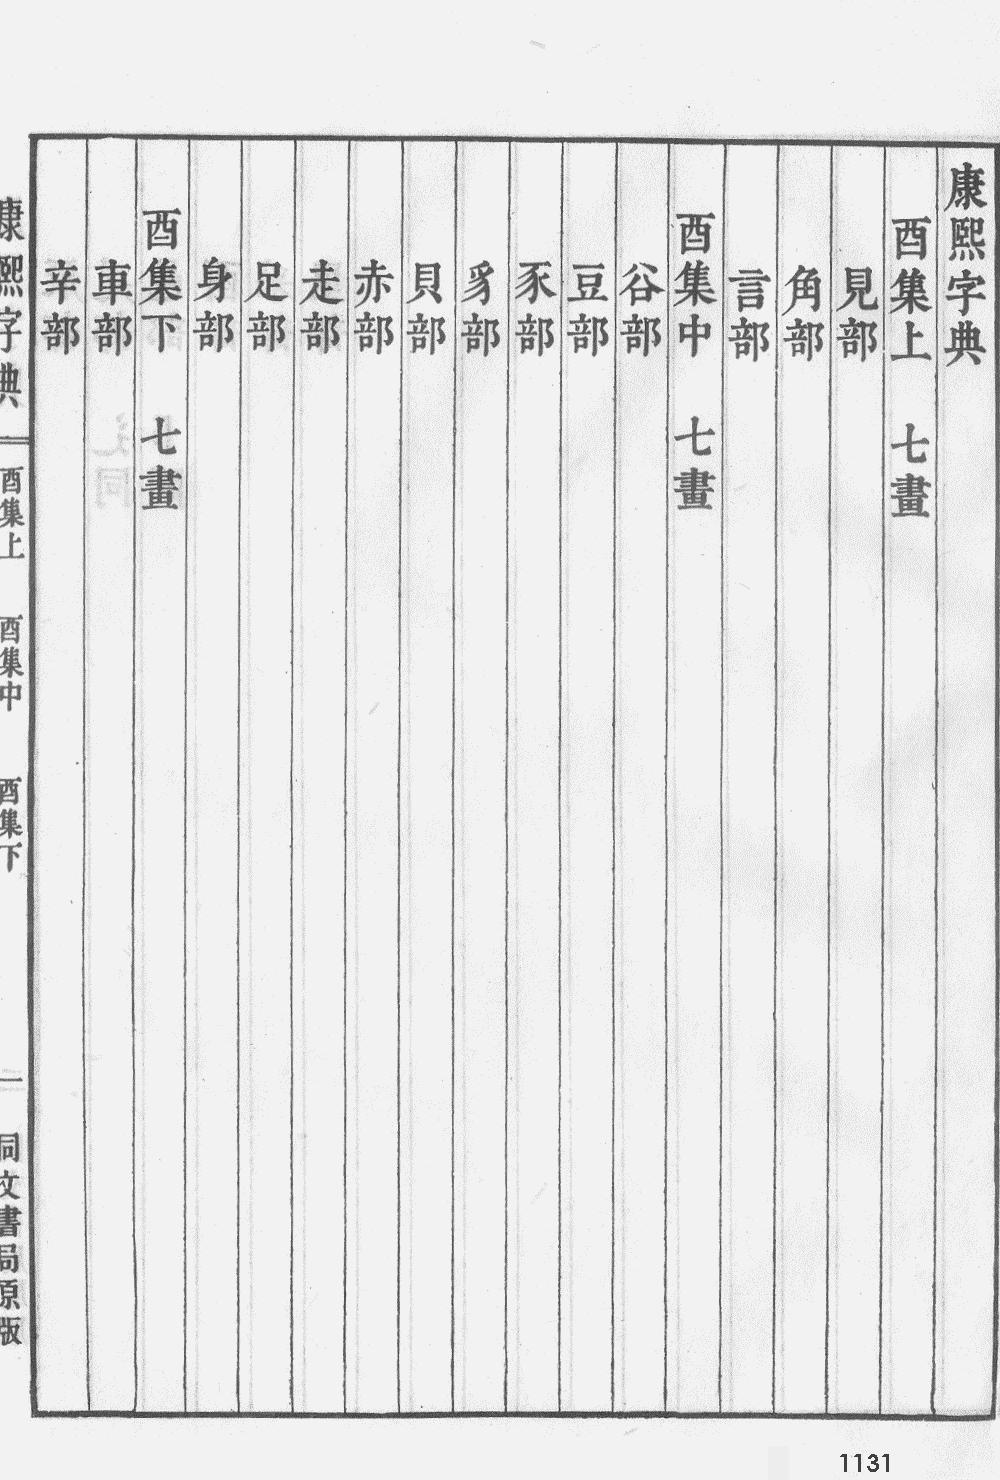 康熙字典
酉集上 七畫
見部
角部
言部
酉集中 七畫
谷部
豆部
豕部
豸部
貝部
赤部
走部
足部
身部
酉集下 七畫
車部
辛部
康熙字典 酉集上 酉集中 酉集下 一 同文書局原版
1131